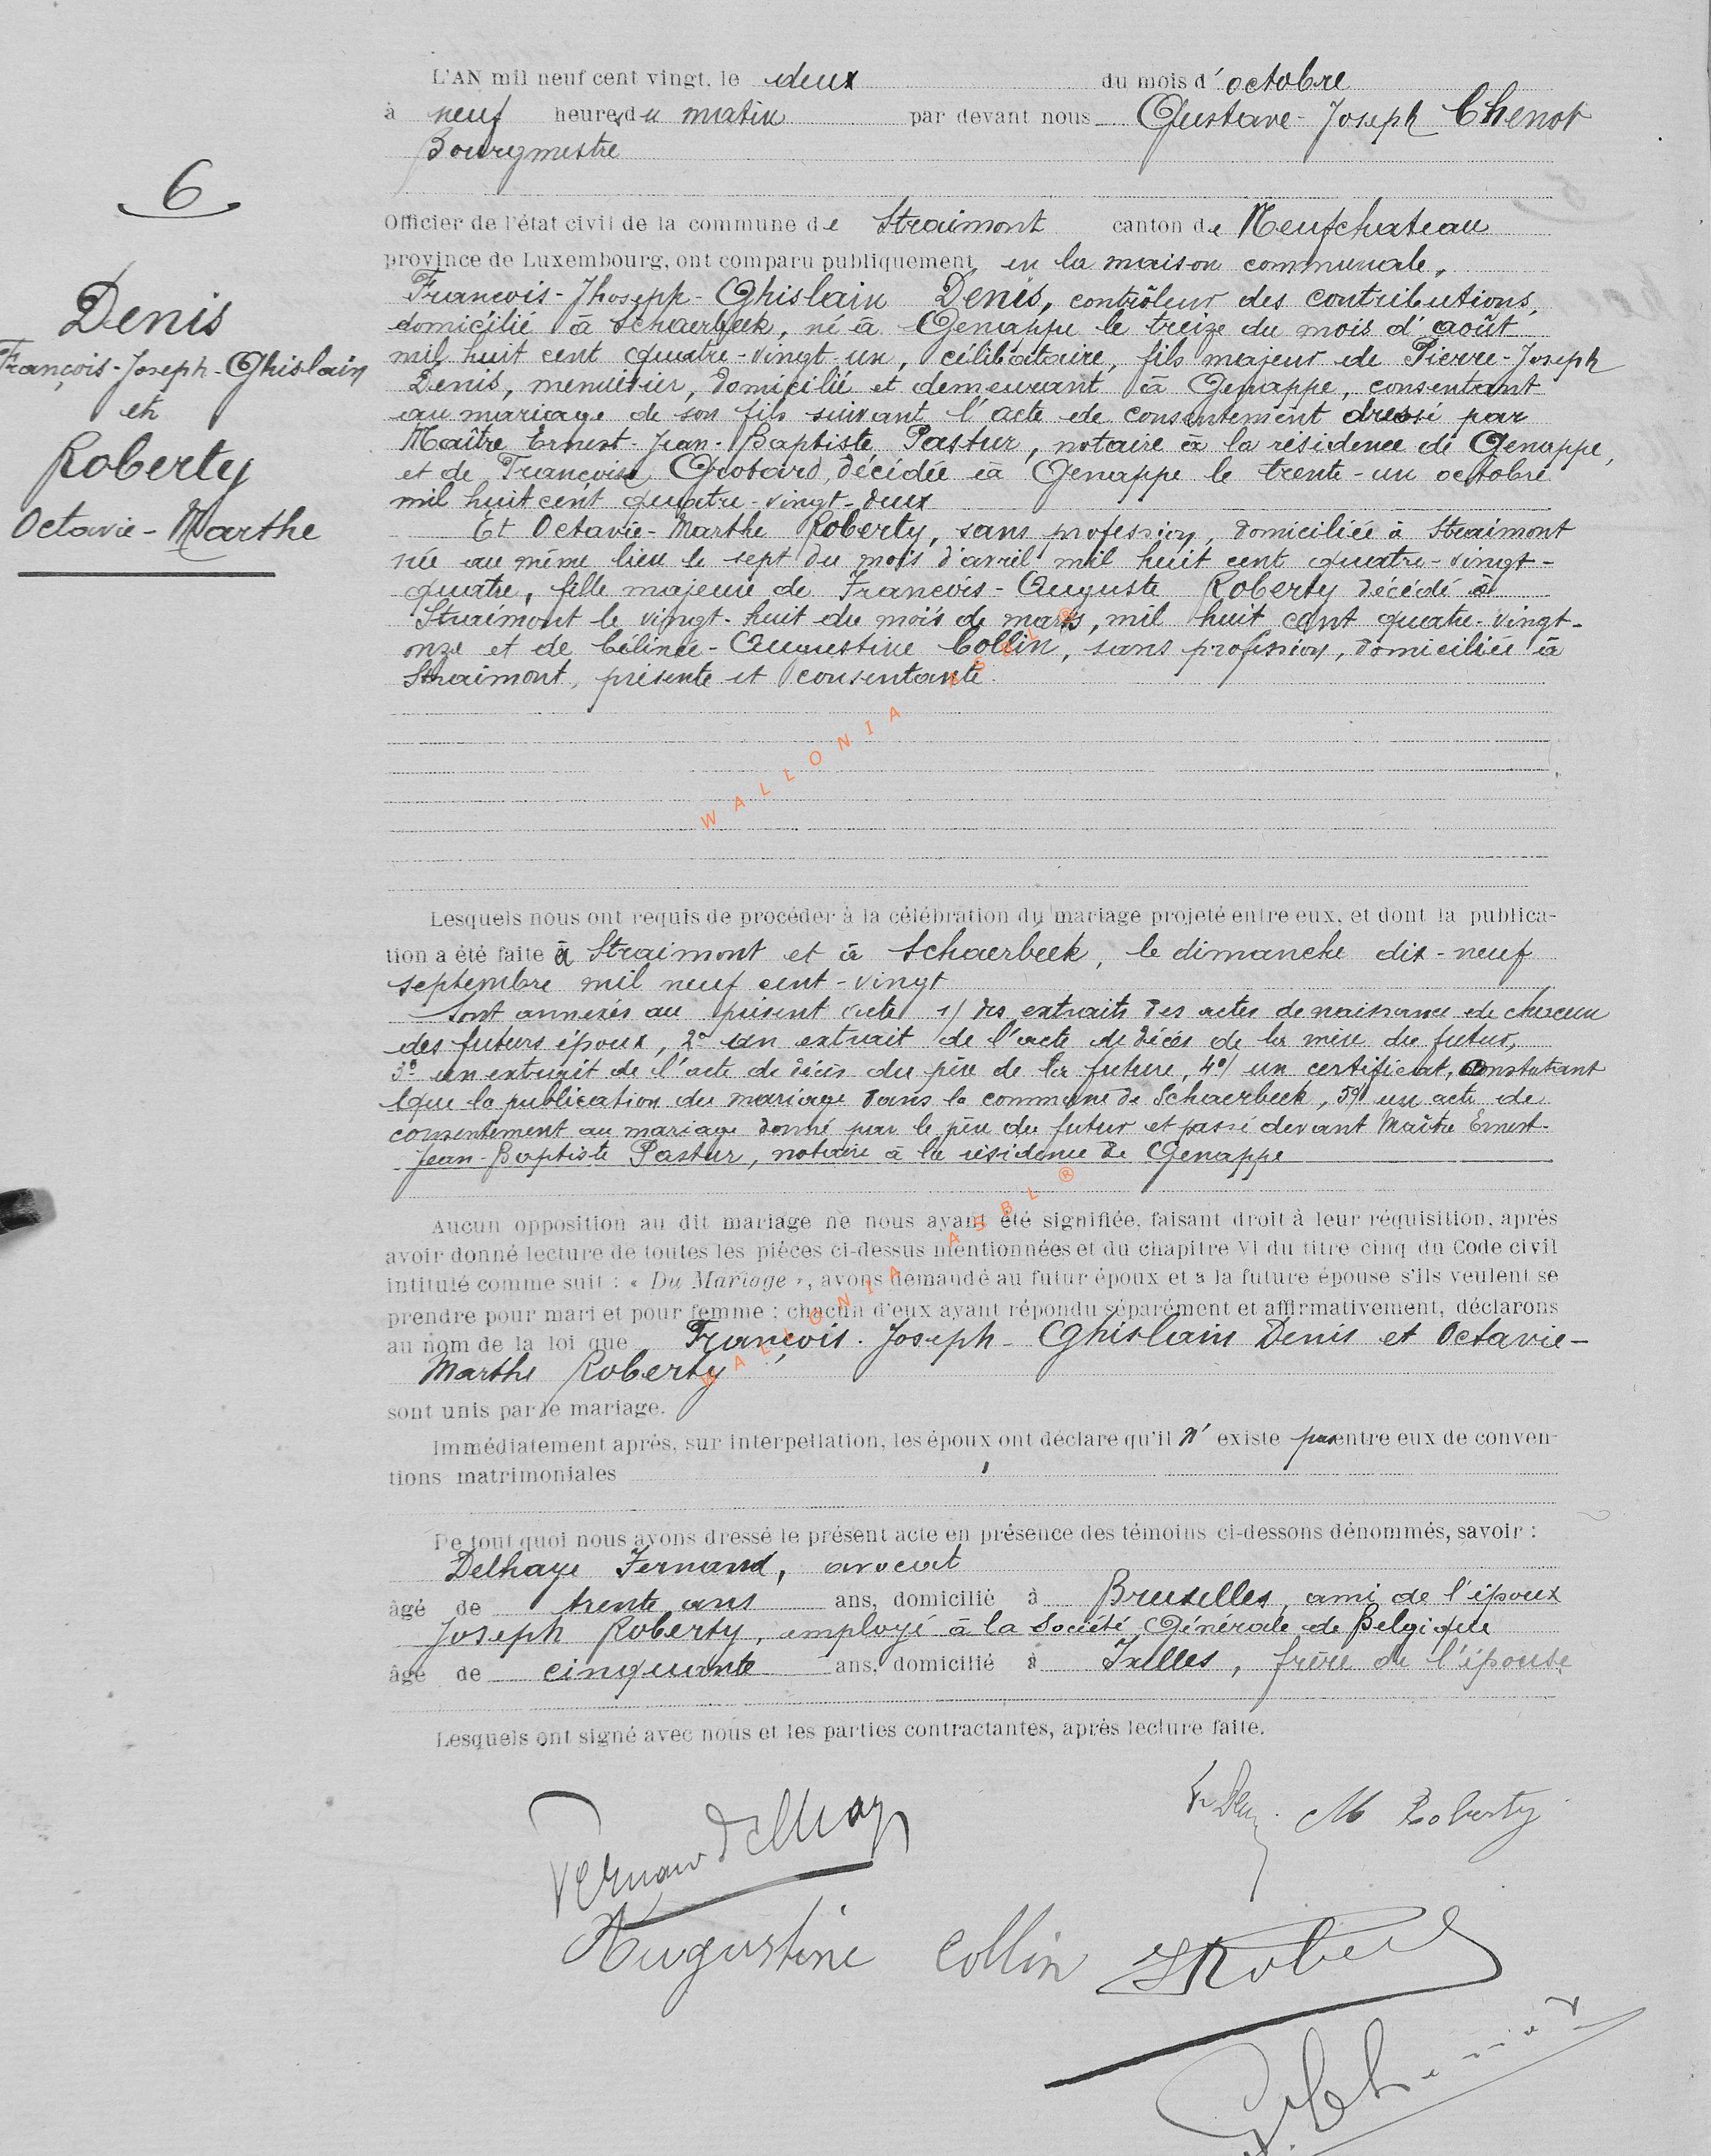 L'AN mil neuf cent vingt, le deux du mois d'octobre
à neuf heures du matin par devant nous Gustave-Joseph Chenot
Bourgmestre
6
Officier de l'état civil de la commune de Straimont canton de Neufchateau
province de Luxembourg, ont comparu publiquement en la maison communale,
Denis
François-Joseph-Ghislain
et
Roberty
Octavie-Marthe
François-Jhoseph-Ghislain Denis, contrôleur des contributions,
domicilié à Schaerbeek, né à Genappe le treize du mois d'août
mil huit cent quatre-vingt-un, célibataire, fils majeur de Pierre-Joseph
Denis, menuisier, domicilié et demeurant à Genappe, consentant
au mariage de son fils suivant l'acte de consentement dressé par
Maître Ernest-Jean-Baptiste Pastur, notaire à la résidence de Genappe,
et de Françoise décédée à Genappe le trente-un octobre
mil huit cent quatre-vingt-deux
Et Octavie-Marthe Roberty, sans profession, domiciliée à Straimont
née au même lieu le sept du mois d'avril mil huit cent quatre-vingt-
quatre, fille majeure de François-Auguste Roberty décédé à
Straimont le vingt-huit du mois de mars, mil huit cent quatre-vingt-
onze et de Célinée-Augustine Collin, sans profession, domiciliée à
Straimont, présente et consentante.
WALLONIA ASBL ®
Lesquels nous ont requis de procéder à la célébration du mariage projeté entre eux, et dont la publica-
tion a été faite à Straimont et à Schaerbeek, le dimanche dix-neuf
septembre mil neuf cent-vingt
Sont annexés au présent acte 1/ des extraits des actes de naissance de chacun
des futurs époux, 2° un extrait de l'acte de décès de la mère du futur,
3° un extrait de l'acte de décès du père de la future, 4°/ un certificat, constatant
que la publication du mariage dans la commune de Schaerbeek, 5°/ un acte de
consentement au mariage donné par le père du futur et passé devant Maître Ernest-
Jean-Baptiste Pastur, notaire à la résidence de Genappe
Aucun opposition au dit mariage ne nous ayant été signifiée, faisant droit à leur réquisition, après
avoir donné lecture de toutes les pièces ci-dessus mentionnées et du chapitre VI du titre cinq du Code civil
intitulé comme suit : « Du Mariage », avons demandé au futur époux et à la future épouse s'ils veulent se
prendre pour mari et pour femme ; chacun d'eux ayant répondu séparément et affirmativement, déclarons
au nom de la loi que François-Joseph-Ghislain Denis et Octavie-
Marthe Roberty
WALLONIA ASBL ®
sont unis par le mariage.
Immédiatement après, sur interpellation, les époux ont déclaré qu'il n'existe pas entre eux de conven-
tions matrimoniales
De tout quoi nous avons dressé le présent acte en présence des témoins ci-dessons dénommés, savoir :
Delhaye Fernand, avocat
âgé de trente ans ans, domicilié à Bruxelles, ami de l'époux
Joseph Roberty, employé à la Société Générale de Belgique
âgé de cinquante ans, domicilié à Ixelles, frère de l'épouse
Lesquels ont signé avec nous et les parties contractantes, après lecture faite.
Fernand Delhaye
M Roberty
Augustine Collin